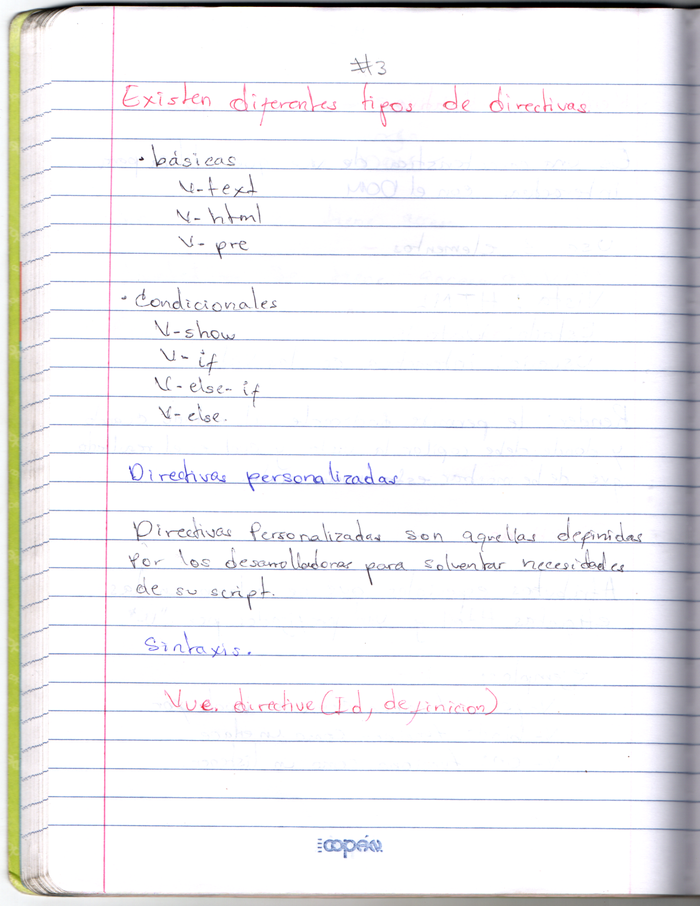 #3
Existen diferentes tipos de directivas
• básicas
V-text
V-html
V-pre
• Condicionales
V-show
V-if
V-else-if
V-else.
Directivas personalizadas
Directivas Personalizadas son aquellas definidas
por los desarrolladores para solventar necesidades
de su script.
Sintaxis.
Vue.directive(Id, definicion)
copán